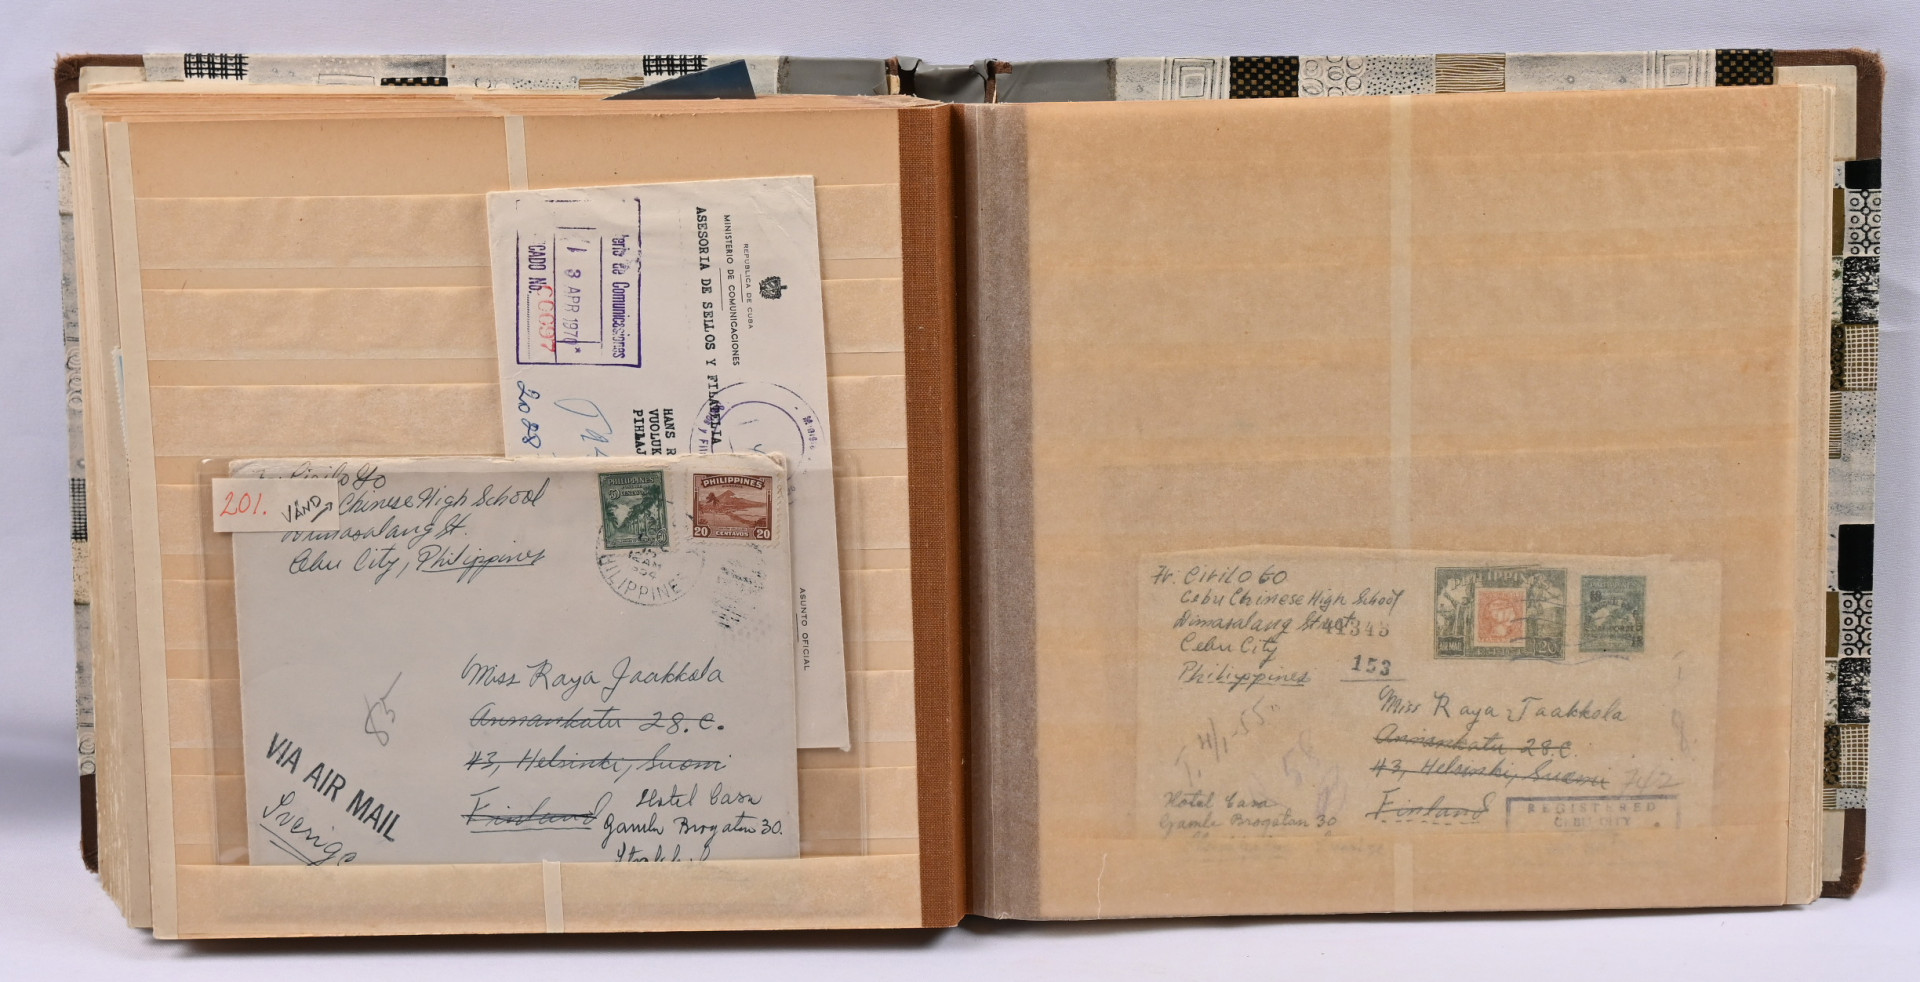 REPUBLICA DE CUBA
MINISTERIO DE COMUNICACIONES
ASESORIA DE SELLOS Y FILATELIA
de Comunicaciones
APR 1970
CADO No. 00097
2028
HANS R
VUOLUK
PIHLAJ
ASUNTO OFICIAL
201. VÄND
Cirilo Go
Chinese High School
Dimasalang St.
Cebu City, Philippines
PHILIPPINES
50 50
PHILIPPINES
20 CENTAVOS 20
PHILIPPINES
85
Miss Raya Jaakkola
Annankatu 28.C.
#3, Helsinki, Suomi
Finland
Hotel Casa
Gamla Brogatan 30.
VIA AIR MAIL
Sverige
Fr. Cirilo Go
Cebu Chinese High School
Dimasalang Street
44343
Cebu City
Philippines
153
PHILIPPINES
AIR MAIL
20
Miss Raya Jaakkola
Annankatu 28.C.
#3, Helsinki, Suomi
742
Finland
REGISTERED
CEBU CITY
Hotel Casa
Gamla Brogatan 30